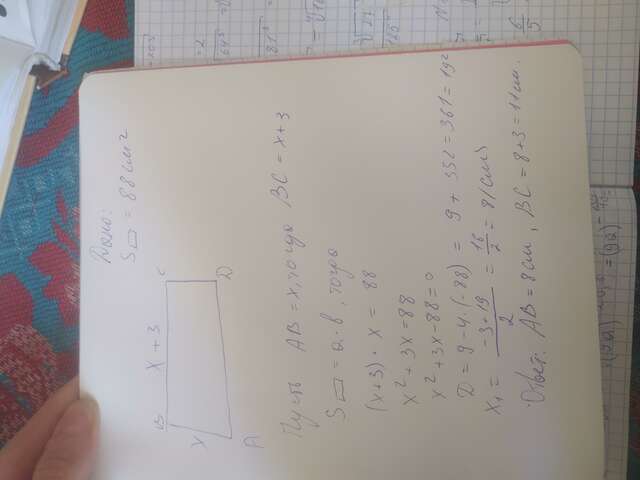 Дано:
S▭ = 88 см²
B x + 3 C
x
A D
Пусть AB = x, тогда BC = x+3
S▭ = a·b, тогда
(x+3)· x = 88
x² + 3x = 88
x² + 3x - 88 = 0
D = 9 - 4·(-88) = 9 + 352 = 361 = 19²
x₁ = (-3+19)/2 = 16/2 = 8 (см)
Ответ: AB = 8 см, BC = 8+3 = 11 см.